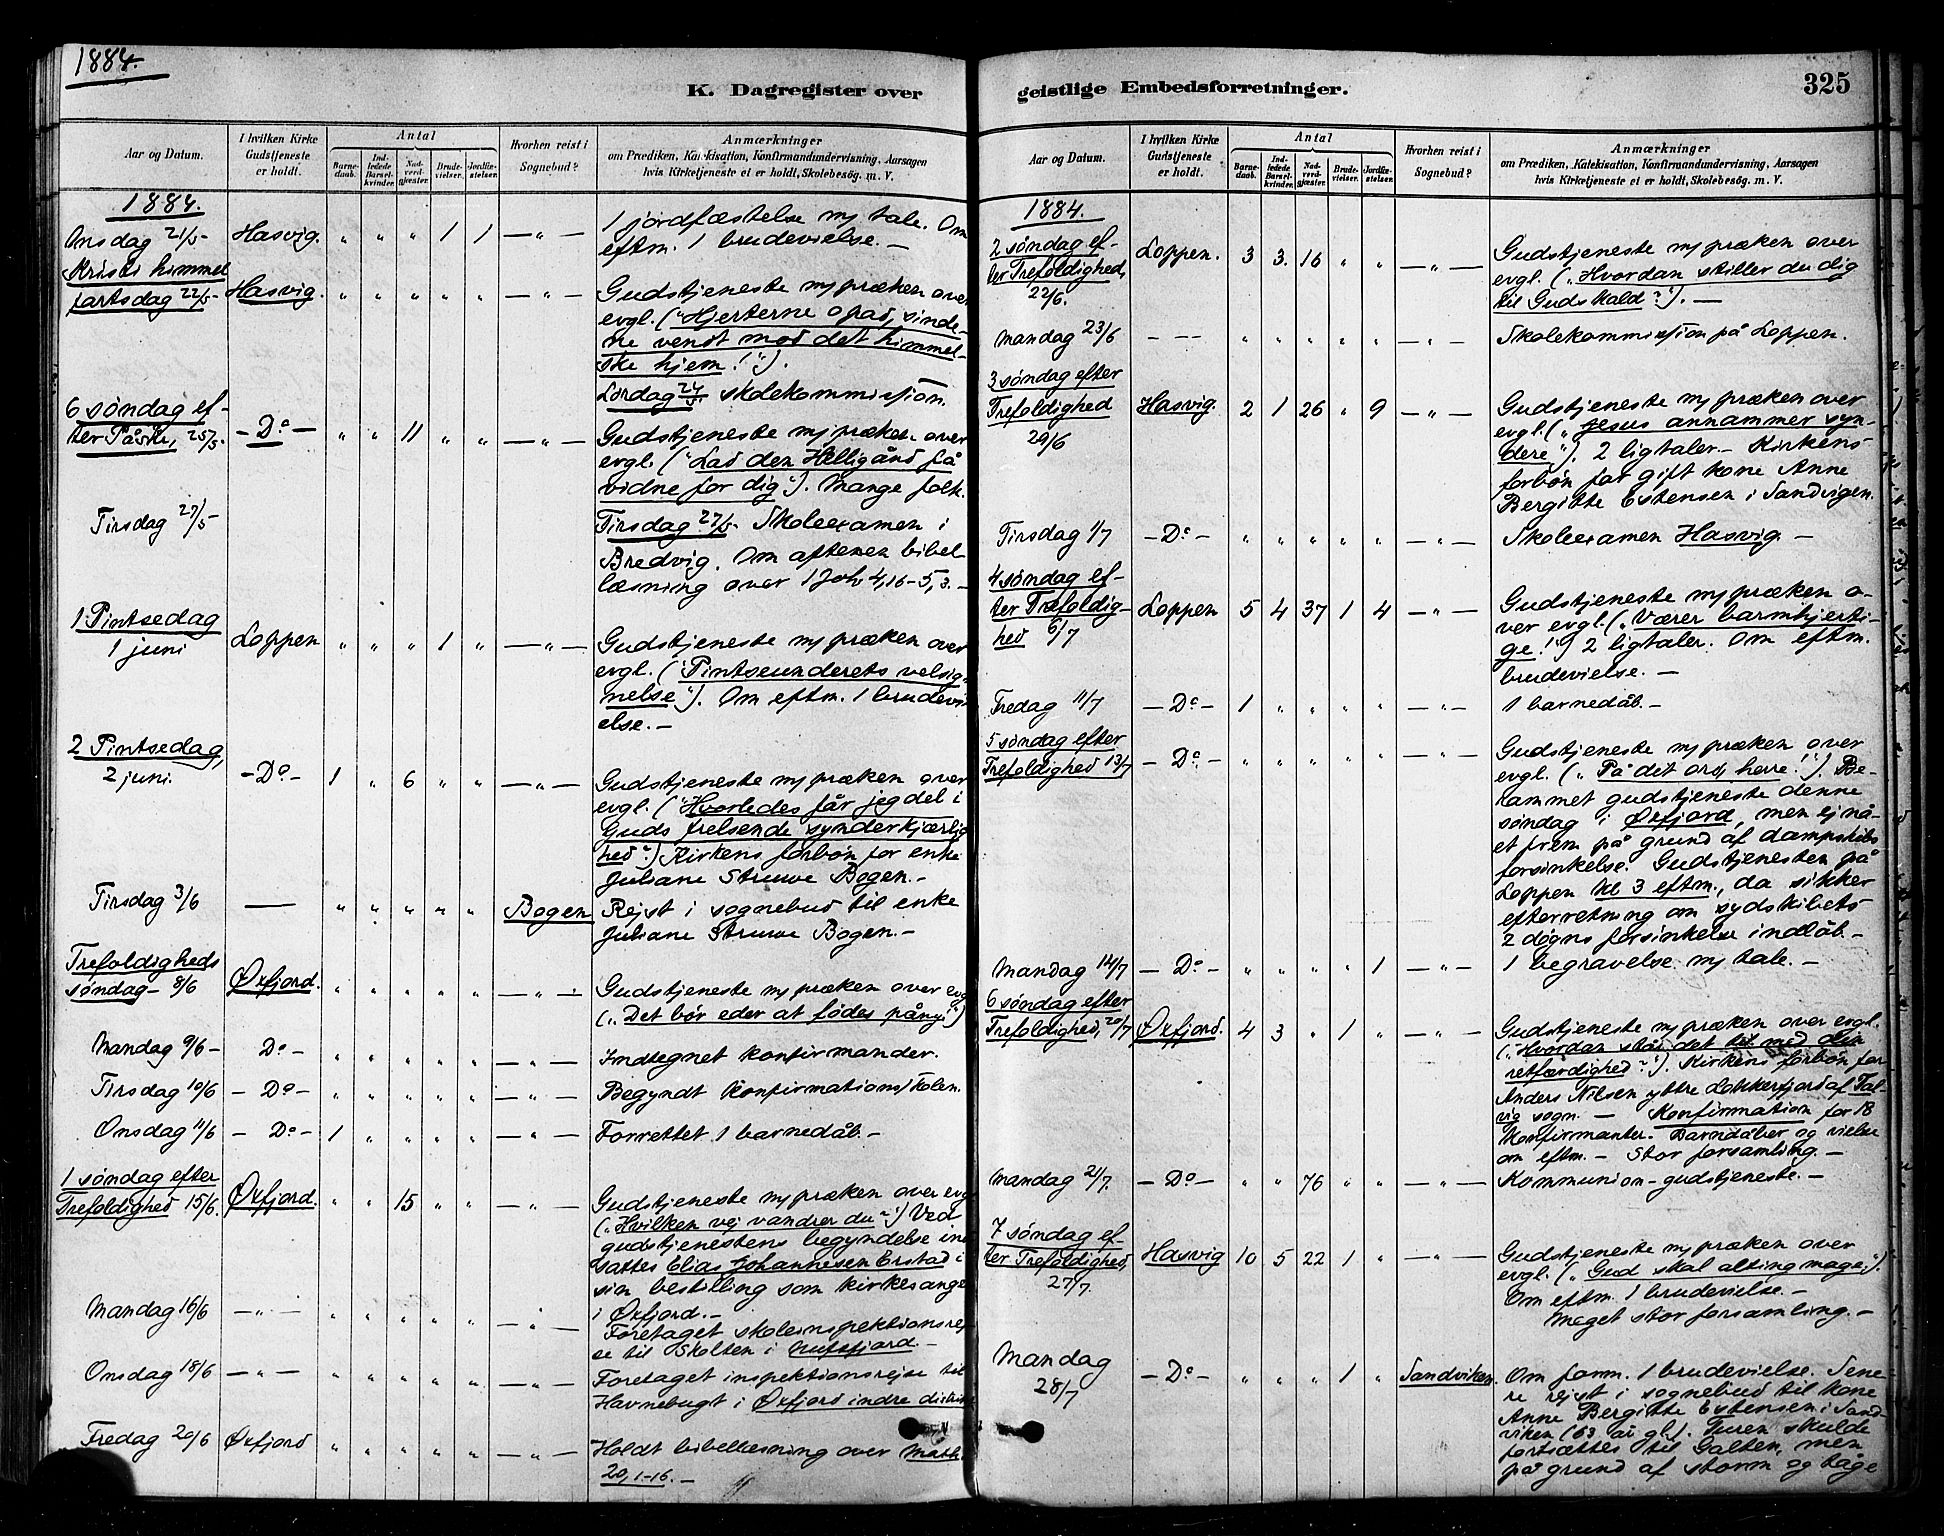 1884.
K. Dagregister over
Aar og Datum.
I hvilken Kirke
Gudstjeneste
er holdt.
Antal
Barne-
daab.
Ind-
ledede
Barsel-
kvinder.
Nad-
verd-
gjæster.
Brude-
vielser.
Jordfæ-
stelser.
Hvorhen reist i
Sognebud?
Anmærkninger
om Prædiken, Katekisation, Konfirmandundervisning, Aarsagen
hvis Kirketjeneste ei er holdt, Skolebesøg. m. V.
1884.
Onsdag 21/5- Hasvig. " " " 1 1 — " — 1 jordfæstelse m/ tale. Om
eftm. 1 brudevielse. —
Kristi himmel
fartsdag 22/5- Hasvig. " " " " " — " — Gudstjeneste m/ præken over
evgl. ("Hjerterne opad, sinde-
ne vendt mod det himmel-
ske hjem!").
Lørdag 24/5 skolekommission.
6 søndag ef-
ter Påske, 25/5. — Do — " " 11 " " — " — Gudstjeneste m/ præken over
evgl. ("Lad den Helligånd få
vidne for dig"). Mange folk.
Tirsdag 27/5 Tirsdag 27/5- Skoleexamen i
Bredvig. Om aftenen bibel-
læsning over 1 Joh 4,16-5,3. —
1 Pintsedag
1 juni Loppen " " " 1 " — " — Gudstjeneste m/ præken over
evgl. ("Pintseunderets velsig
nelse"). Om eftm. 1 brudevi
else. —
2 Pintsedag,
2 juni — Do — 1 " 6 " " — " — Gudstjeneste m/ præken over
evgl. ("Hvorledes får jeg del i
Guds frelsende synderkjærlig
hed?") Kirkens forbøn for enke
Juliane Struwe Bogen. —
Tirsdag 3/6 — " " " " " Bogen Rejst i sognebud til enke
Juliane Struwe Bogen. —
Trefoldigheds
søndag — 8/6 Øxfjord. " " " " " — " — Gudstjeneste m/ præken over evg
("Det bør eder at fødes påny")
Mandag 9/6 — Do — " " " " " — " — Indtegnet konfirmander.
Tirsdag 10/6 — Do — " " " " " — " — Begyndt konfirmationsskolen.
Onsdag 11/6 — Do — 1 " " " " — " — Forrettet 1 barnedåb. —
1 søndag efter
Trefoldighed 15/6. Øxfjord. " " 15 " " — " — Gudstjeneste m/ præken over evg
("Hvilken vej vandrer du?") Ved
gudstjenestens begyndelse ind
sattes Elias Johannesen Erstad i
sin bestilling som kirkesange
i Øxfjord. —
Mandag 16/6 — " — " " " " " — " — Foretaget skoleinspektionsrej
se til Skolten i Nufsfjord. —
Onsdag 18/6 — " — " " " " " — " — Foretaget inspektionsrejse til
Havnebugt i Øxfjord indre distrikt
Fredag 20/6 Øxfjord " " " " " — " — Holdt bibellæsning over Math.
20, 1-16. —
geistlige Embedsforretninger.
325
Aar og Datum.
I hvilken Kirke
Gudstjeneste
er holdt.
Antal
Barne-
daab.
Ind-
ledede
Barsel-
kvinder.
Nad-
verd-
gjæster.
Brude-
vielser.
Jordfæ-
stelser.
Hvorhen reist i
Sognebud?
Anmærkninger
om Prædiken, Katekisation, Konfirmandundervisning, Aarsagen
hvis Kirketjeneste ei er holdt, Skolebesøg. m. V.
1884.
2 søndag ef-
ter Trefoldighed, Loppen. 3 3. 16 " " — " — Gudstjeneste m/ præken over
22/6. evgl. ("Hvordan stiller du dig
til Guds kald?"). —
Mandag 23/6 — — " " " " " — " — Skolekommission på Loppen.
3 søndag efter
Trefoldighed Hasvig. 2 1 26 " 9 — " — Gudstjeneste m/ præken over
29/6 evgl. ("Jesus annammer syn-
dere"). 2 ligtaler. — Kirkens
forbøn for gift kone Anne
Bergitte Estensen i Sandvigen.
Tirsdag 1/7 — Do — " " " " " — " — Skoleexamen Hasvig —
4 søndag ef-
ter Trefoldig- Loppen 5 4 37 1 4 — " — Gudstjeneste m/ præken o-
hed 6/7 ver evgl. ("Værer barmhjerti-
ge!") 2 ligtaler. Om eftm.
brudevielse. —
Fredag 11/7 — Do — 1 " " " " — " — 1 barnedåb. —
5 søndag efter
Trefoldighed 13/7 — Do — " " " " " — " — Gudstjeneste m/ præken over
evgl. ("På dit ord, herre!"). Be-
rammet gudstjeneste denne
søndag i Øxfjord, men ej nå-
et frem på grund af dampskibs
forsinkelse. Gudstjenesten på
Loppen kl 3 eftm., da sikker
efterretning om sydskibets
2 døgns forsinkelse indløb. —
Mandag 14/7 — Do — " " " " 1 — " — 1 begravelse m/ tale. —
6 søndag efter
Trefoldighed, 20/7 Øxfjord. 4 3 " 1 " — " — Gudstjeneste m/ præken over evgl.
("Hvordan står det til med din
retfærdighed?"). Kirkens forbøn for
Anders Nilsen yttre Lokkerfjord af Tal-
vig sogn. — Konfirmation for 18
konfirmanter. Barndåber og vielse
om eftm. — Stor forsamling. —
Mandag 21/7. — Do — " " 76 " " — " — Kommunion-gudstjeneste. —
7 søndag ef-
ter Trefoldighed, Hasvig 10 5 22 1 " — " — Gudstjeneste m/ præken over
27/7. evgl. ("Gud skal alting mage").
Om eftm. 1 brudevielse. —
Maget stor forsamling. —
Mandag
28/7 — Do — " " " 1 " Sandviken. Om form. 1 brudevielse. Sene-
re rejst i sognebud til kone
Anne Bergitte Estensen i Sand-
viken (63 år gl.). Turen skulde
fortsættes til Galten, men
på grund af storm og tåge